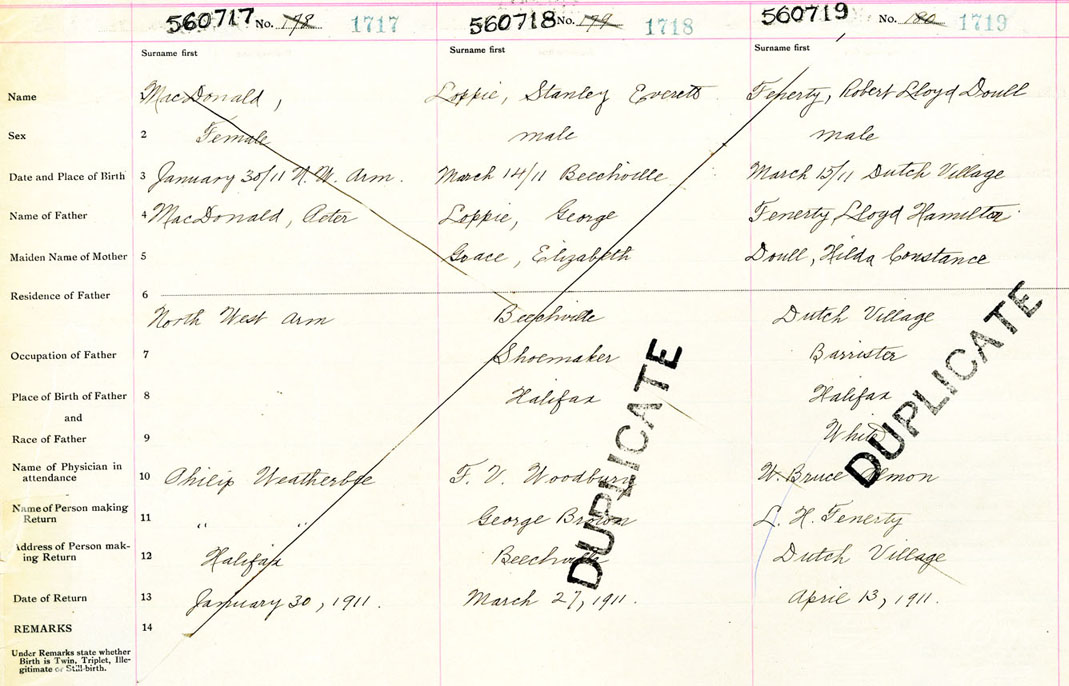 560717 No. 178 1717 560718 No. 179 1718 560719 No. 180 1719
Surname first Surname first Surname first
Name 1 MacDonald, Loppie, Stanley Everett Fenerty, Robert Lloyd Doull
Sex 2 Female male male
Date and Place of Birth 3 January 30/11 N.W. Arm. March 14/11 Beechville March 15/11 Dutch Village
Name of Father 4 MacDonald, Peter Loppie, George Fenerty Lloyd Hamilton
Maiden Name of Mother 5 Grace, Elizabeth Doull, Hilda Constance
Residence of Father 6
North West Arm Beechville Dutch Village
Occupation of Father 7 Shoemaker Barrister
Place of Birth of Father 8 Halifax Halifax
and
Race of Father 9 White
Name of Physician in
attendance 10 Philip Weatherbee F. V. Woodbury W. Bruce Almon
Name of Person making
Return 11 " " George Brown L. H. Fenerty
Address of Person mak-
ing Return 12 Halifax Beechville Dutch Village
Date of Return 13 January 30, 1911. March 27, 1911. April 13, 1911.
REMARKS 14
Under Remarks state whether
Birth is Twin, Triplet, Ille-
gitimate or Still-birth.
DUPLICATE
DUPLICATE